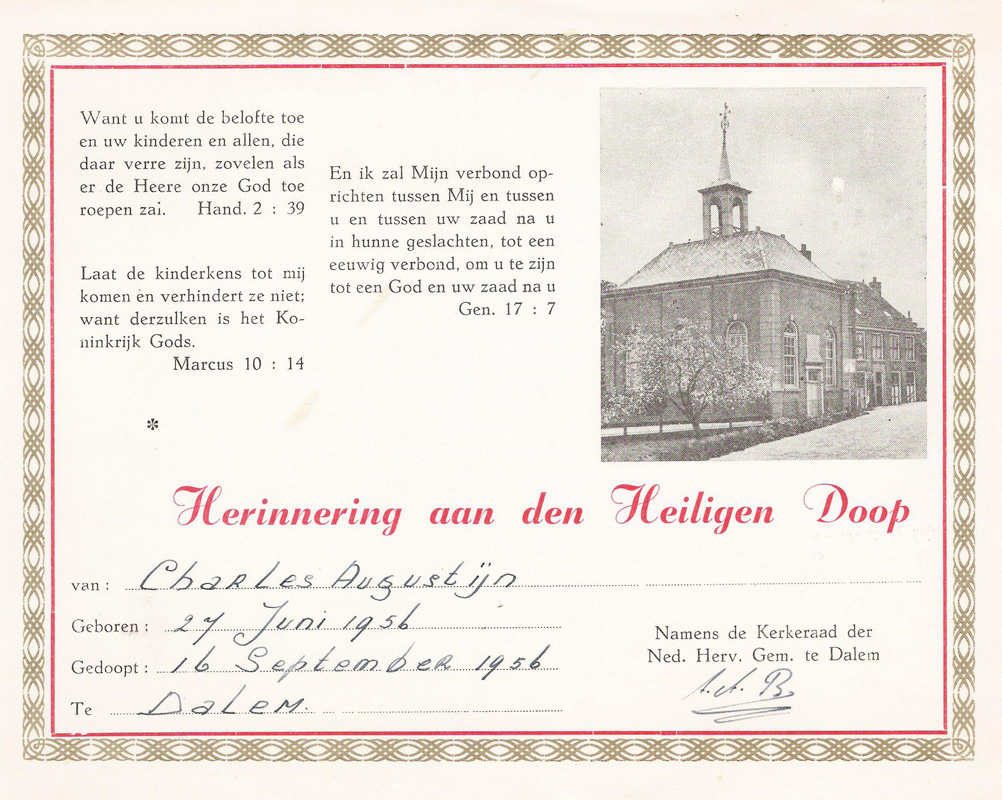 Want u komt de belofte toe
en uw kinderen en allen, die
daar verre zijn, zovelen als
er de Heere onze God toe
roepen zai. Hand. 2 : 39
Laat de kinderkens tot mij
komen en verhindert ze niet;
want derzulken is het Ko-
ninkrijk Gods.
Marcus 10 : 14
*
En ik zal Mijn verbond op-
richten tussen Mij en tussen
u en tussen uw zaad na u
in hunne geslachten, tot een
eeuwig verbond, om u te zijn
tot een God en uw zaad na u
Gen. 17 : 7
Herinnering aan den Heiligen Doop
van : Charles Augustijn
Geboren : 27 Juni 1956
Gedoopt : 16 September 1956
Te Dalem.
Namens de Kerkeraad der
Ned. Herv. Gem. te Dalem